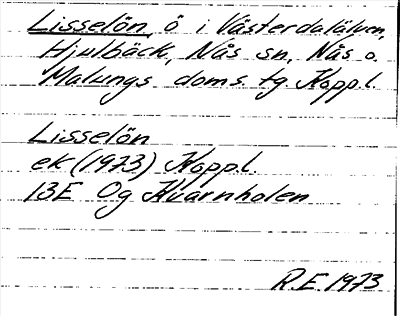 Lisselön, ö i Västerdalälven,
Hjulbäck, Nås sn, Nås o.
Malungs doms. tg. Kopp.l.
Lisselön
ek (1973) Kopp.l.
13E 0g Kvarnholen
R.E. 1973